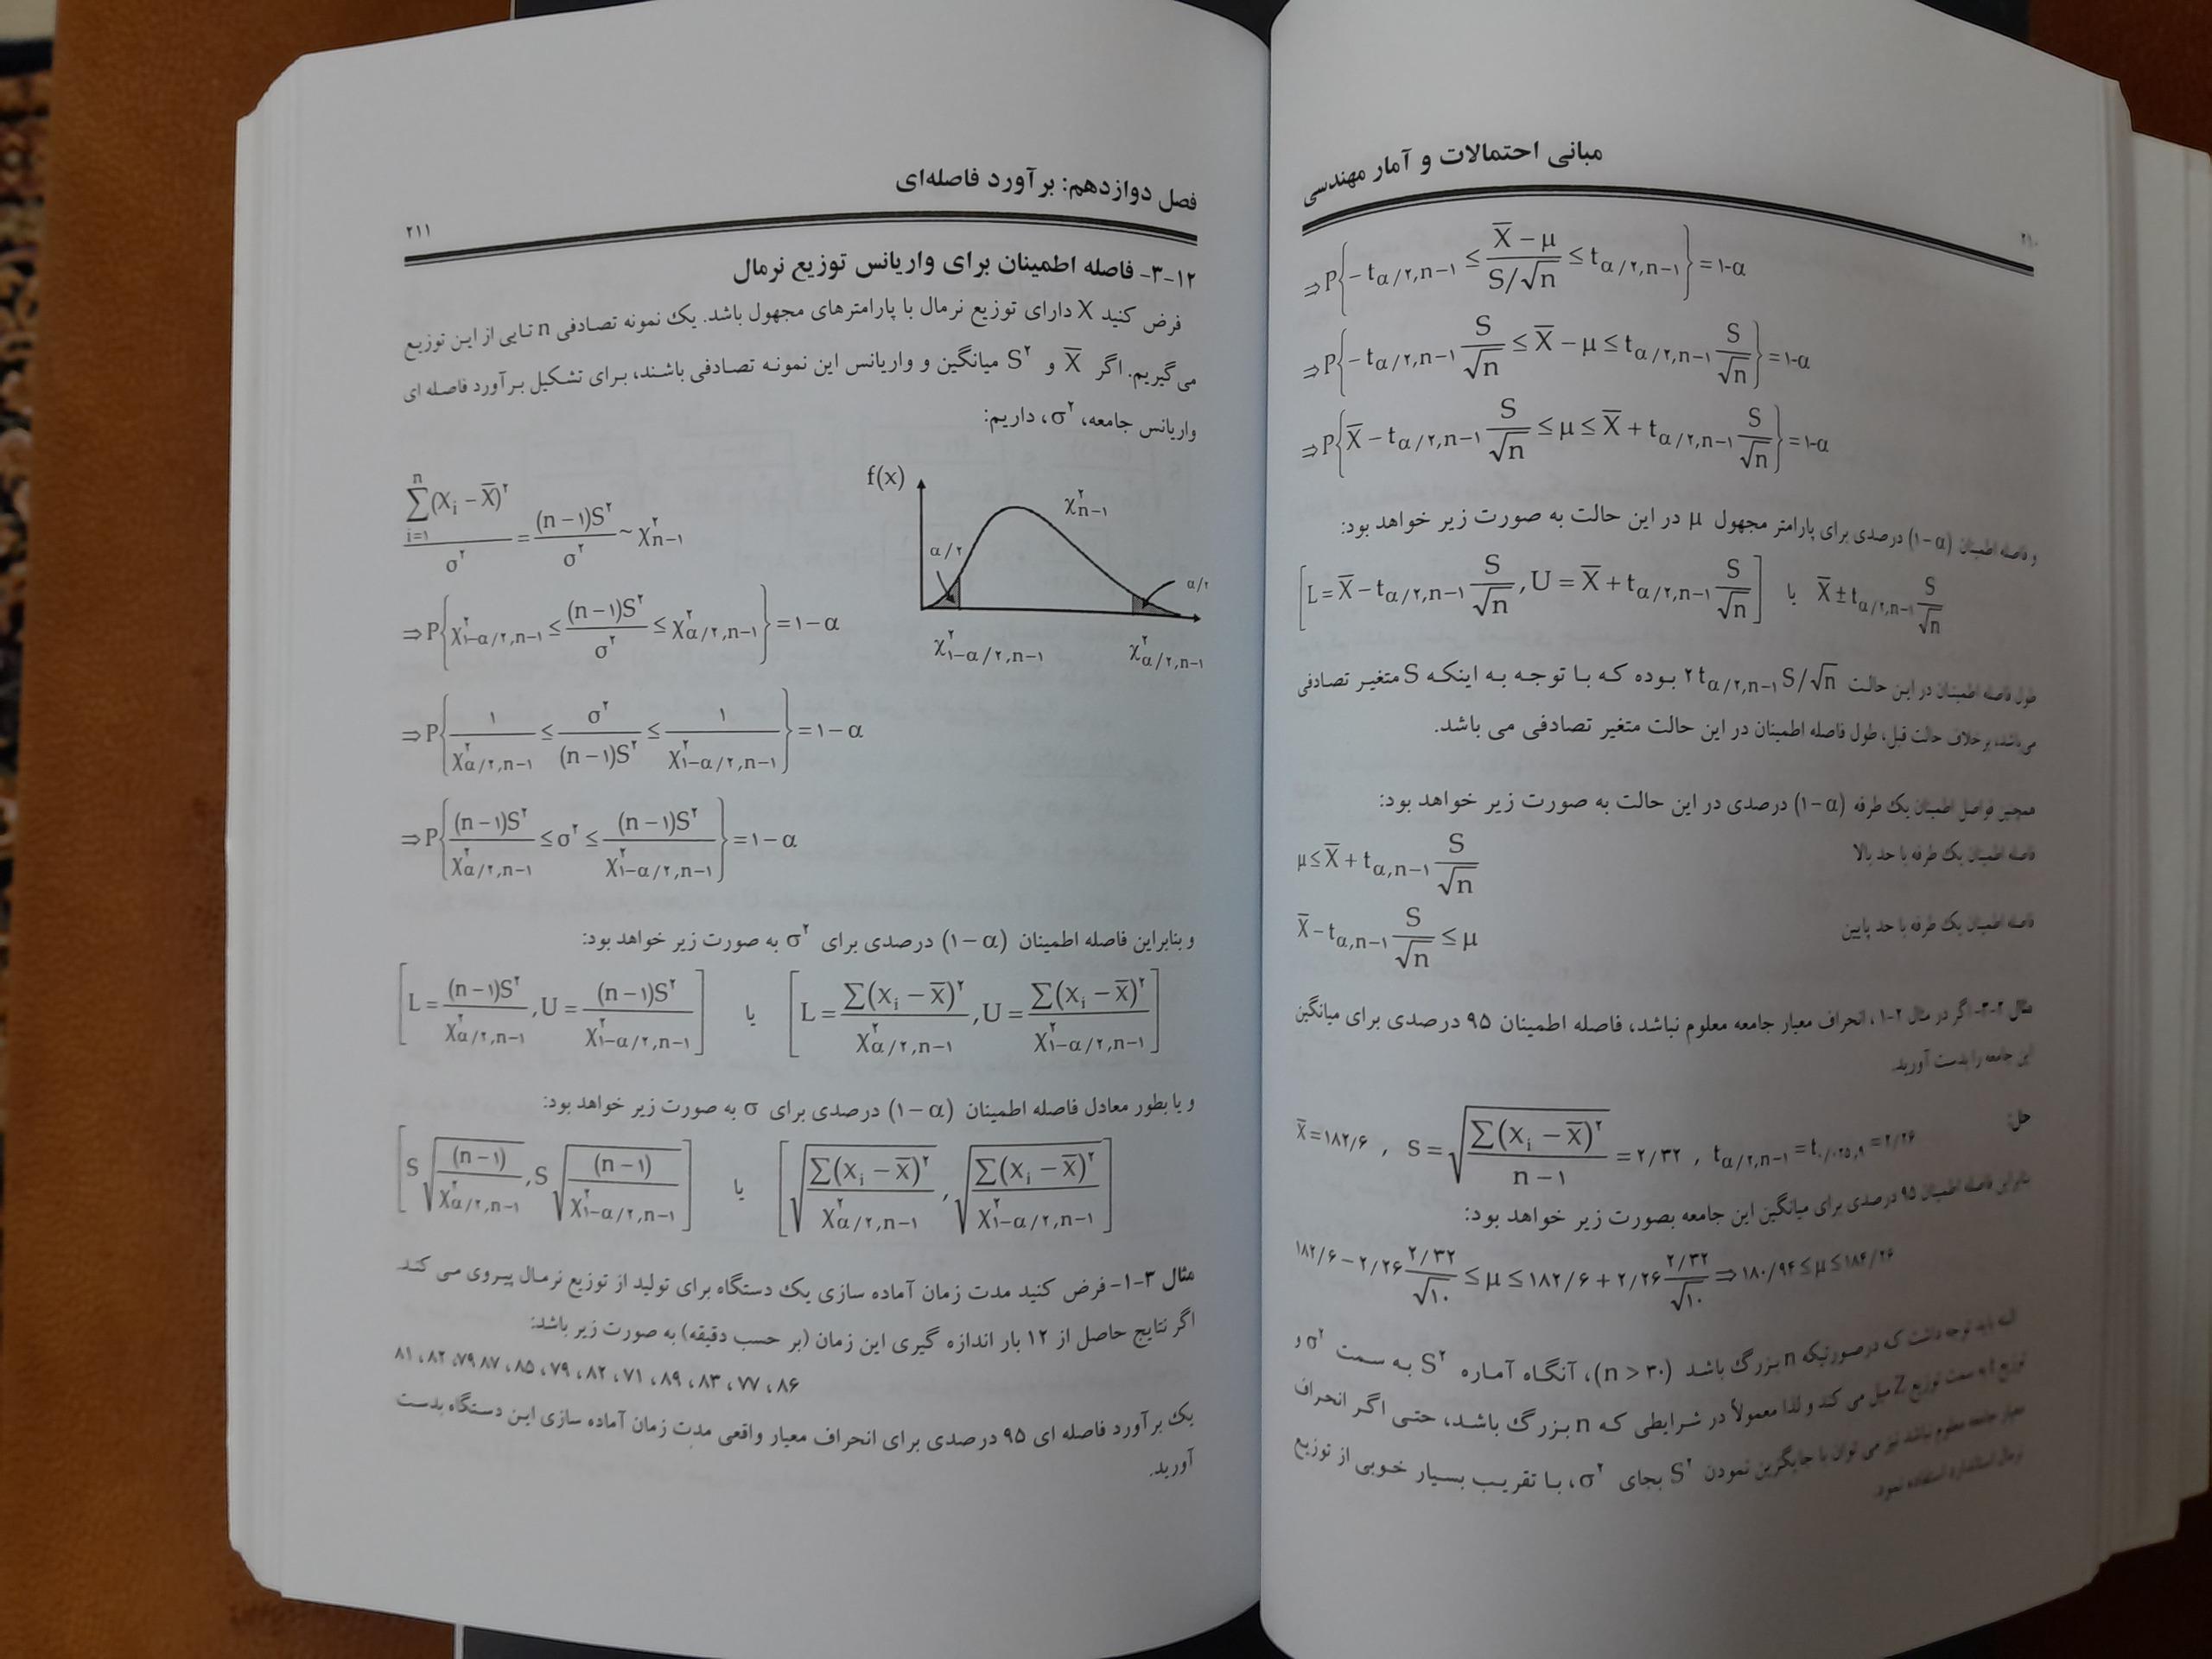 مبانی احتمالات و آمار مهندسی
۲۱۰
⇒P{−t α/۲,n−۱ ≤ (X̄ − μ)/(S/√n) ≤ t α/۲,n−۱} = ۱-α
⇒P{−t α/۲,n−۱ S/√n ≤ X̄ − μ ≤ t α/۲,n−۱ S/√n} = ۱-α
⇒P{X̄ − t α/۲,n−۱ S/√n ≤ μ ≤ X̄ + t α/۲,n−۱ S/√n} = ۱-α
و فاصله اطمینان (۱−α) درصدی برای پارامتر مجهول μ در این حالت به صورت زیر خواهد بود:
[L = X̄ − t α/۲,n−۱ S/√n , U = X̄ + t α/۲,n−۱ S/√n] یا X̄ ± t α/۲,n−۱ S/√n
طول فاصله اطمینان در این حالت ۲ t α/۲,n−۱ S/√n بوده که با توجه به اینکه S متغیر تصادفی
می‌باشد، برخلاف حالت قبل، طول فاصله اطمینان در این حالت متغیر تصادفی می باشد.
همچنین فواصل اطمینان یک طرفه (۱−α) درصدی در این حالت به صورت زیر خواهد بود:
فاصله اطمینان یک طرفه با حد بالا μ ≤ X̄ + t α,n−۱ S/√n
فاصله اطمینان یک طرفه با حد پایین X̄ − t α,n−۱ S/√n ≤ μ
مثال ۲-۳- اگر در مثال ۲-۱، انحراف معیار جامعه معلوم نباشد، فاصله اطمینان ۹۵ درصدی برای میانگین
این جامعه را بدست آورید.
حل:
X̄ = ۱۸۲/۶ , S = √(∑(x i − x̄)²/(n − ۱)) = ۲/۳۲ , t α/۲,n−۱ = t ۰/۰۲۵,۹ = ۲/۲۶
بنابراین فاصله اطمینان ۹۵ درصدی برای میانگین این جامعه بصورت زیر خواهد بود:
۱۸۲/۶ − ۲/۲۶ ۲/۳۲/√۱۰ ≤ μ ≤ ۱۸۲/۶ + ۲/۲۶ ۲/۳۲/√۱۰ ⇒ ۱۸۰/۹۴ ≤ μ ≤ ۱۸۴/۲۶
البته باید توجه داشت که درصورتیکه n بزرگ باشد (n > ۳۰)، آنگاه آماره S² به سمت σ² و
توزیع t به سمت توزیع Z میل می کند و لذا معمولاً در شرایطی که n بزرگ باشد، حتی اگر انحراف
معیار جامعه معلوم نباشد نیز می توان با جایگزین نمودن S² بجای σ²، با تقریب بسیار خوبی از توزیع
نرمال استاندارد استفاده نمود.
فصل دوازدهم: برآورد فاصله‌ای
۲۱۱
۱۲-۳- فاصله اطمینان برای واریانس توزیع نرمال
فرض کنید X دارای توزیع نرمال با پارامترهای مجهول باشد. یک نمونه تصادفی n تایی از این توزیع
می گیریم. اگر X̄ و S² میانگین و واریانس این نمونه تصادفی باشند، برای تشکیل برآورد فاصله ای
واریانس جامعه، σ²، داریم:
∑ i=۱ n (X i − X̄)²/σ² = (n − ۱)S²/σ² ~ χ² n−۱
f(x)
χ² n−۱
α/۲
α/۲
χ² ۱−α/۲,n−۱
χ² α/۲,n−۱
⇒P{χ² ۱−α/۲,n−۱ ≤ (n − ۱)S²/σ² ≤ χ² α/۲,n−۱} = ۱ − α
⇒P{۱/χ² α/۲,n−۱ ≤ σ²/(n − ۱)S² ≤ ۱/χ² ۱−α/۲,n−۱} = ۱ − α
⇒P{(n − ۱)S²/χ² α/۲,n−۱ ≤ σ² ≤ (n − ۱)S²/χ² ۱−α/۲,n−۱} = ۱ − α
و بنابراین فاصله اطمینان (۱ − α) درصدی برای σ² به صورت زیر خواهد بود:
[L = (n − ۱)S²/χ² α/۲,n−۱ , U = (n − ۱)S²/χ² ۱−α/۲,n−۱] یا [L = ∑(x i − x̄)²/χ² α/۲,n−۱ , U = ∑(x i − x̄)²/χ² ۱−α/۲,n−۱]
و یا بطور معادل فاصله اطمینان (۱ − α) درصدی برای σ به صورت زیر خواهد بود:
[S √((n − ۱)/χ² α/۲,n−۱) , S √((n − ۱)/χ² ۱−α/۲,n−۱)] یا [√(∑(x i − x̄)²/χ² α/۲,n−۱) , √(∑(x i − x̄)²/χ² ۱−α/۲,n−۱)]
مثال ۳-۱- فرض کنید مدت زمان آماده سازی یک دستگاه برای تولید از توزیع نرمال پیروی می کند.
اگر نتایج حاصل از ۱۲ بار اندازه گیری این زمان (بر حسب دقیقه) به صورت زیر باشد:
۸۶، ۷۷، ۸۳، ۸۹، ۷۱، ۸۲، ۷۹، ۸۵، ۸۷ ،۷۹، ۸۲، ۸۱
یک برآورد فاصله ای ۹۵ درصدی برای انحراف معیار واقعی مدت زمان آماده سازی این دستگاه بدست
آورید.